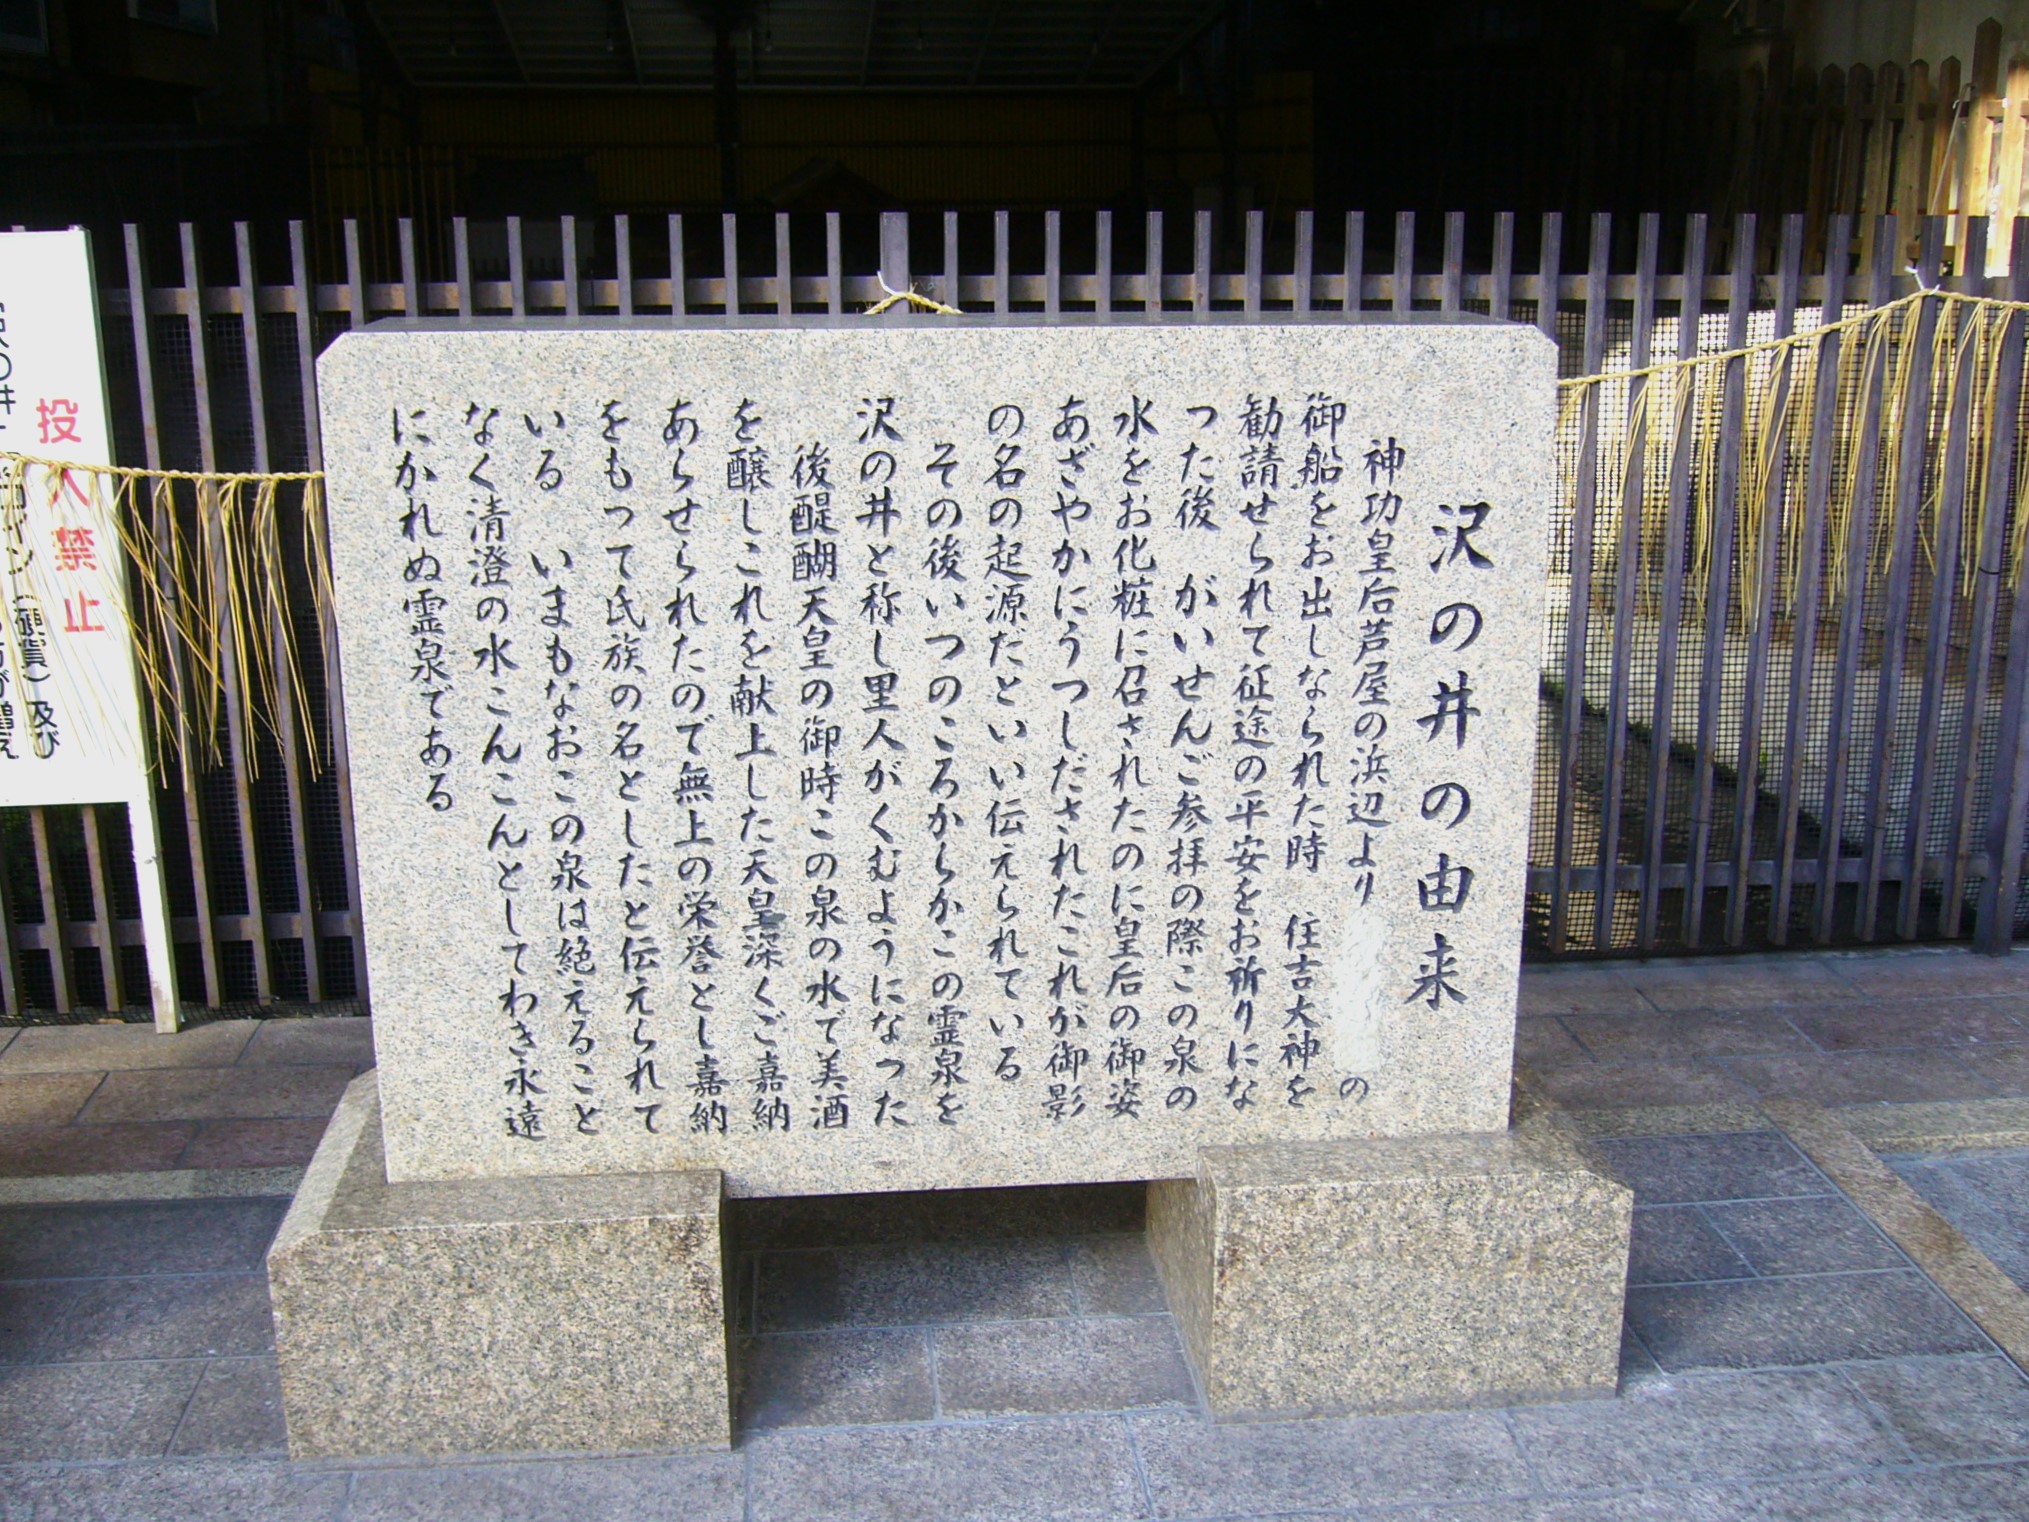 沢の井の由来
神功皇后芦屋の浜辺より
の
御船をお出しなられた時　住吉大神を
勧請せられて征途の平安をお祈りにな
つた後　がいせんご参拝の際この泉の
水をお化粧に召されたのに皇后の御姿
あざやかにうつしだされたこれが御影
の名の起源だといい伝えられている
その後いつのころからかこの霊泉を
沢の井と称し里人がくむようになつた
後醍醐天皇の御時この泉の水で美酒
を醸しこれを献上した天皇深くご嘉納
あらせられたので無上の栄誉とし嘉納
をもつて氏族の名としたと伝えられて
いる　いまもなおこの泉は絶えること
なく清澄の水こんこんとしてわき永遠
にかれぬ霊泉である
投入禁止
(硬貨)及び